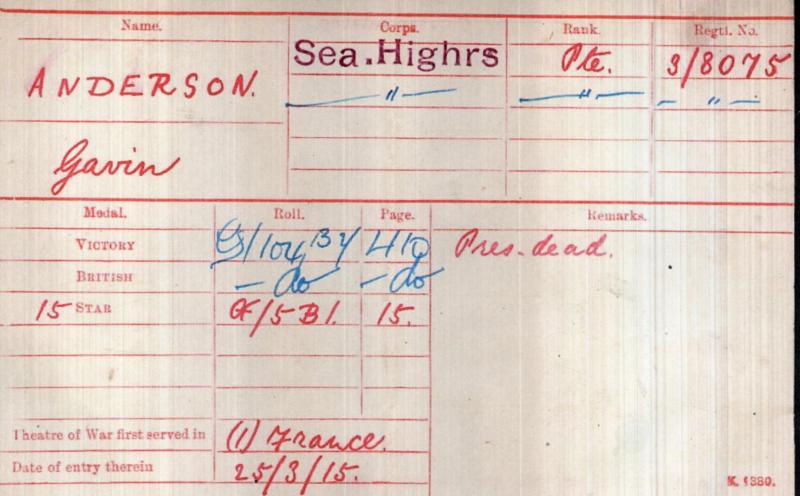 Name. Corps. Rank. Regtl. No.
ANDERSON. Sea.Highrs Pte. 3/8075
— " — — " — — " —
Gavin
Medal. Roll. Page. Remarks.
VICTORY 410 Pres. dead.
BRITISH — do — do
15 STAR 15.
Theatre of War first served in (1) France.
Date of entry therein 25/3/15.
K. 1380.